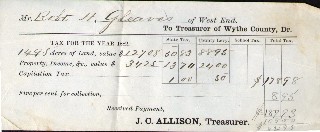 Mr. Robt. H. Gleaves of West End.
To Treasurer of Wythe County, Dr.
TAX FOR THE YEAR 1882. State Tax. County Levy.
Acres of Land, value $ 12708 50 83 8895
Property, Income, &c., value $ 3425 13 70 2400
Capitation Tax, 1 00 50
$ 178 98
Five per cent for collection, 8 95
Received Payment,
J. C. ALLISON, Treasurer.